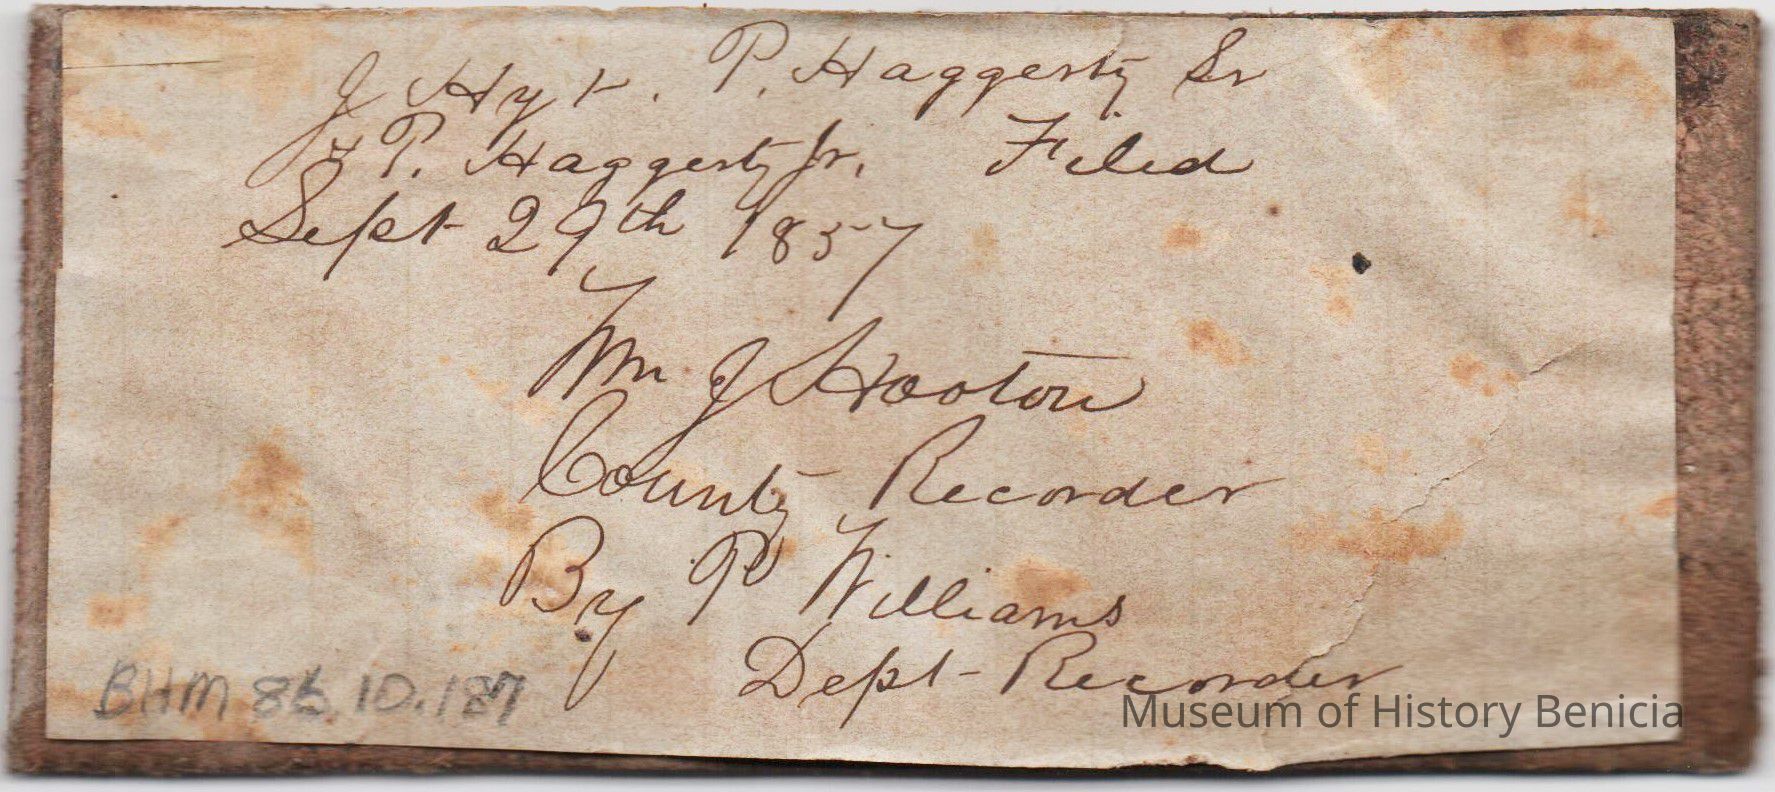 J Hyt. P. Haggerty Sr
& P. Haggerty Jr. Filed
Sept 29th 1857
Wm J Hooton
County Recorder
By P Williams
Dept Recorder
BHM 86.10.187
Museum of History Benicia